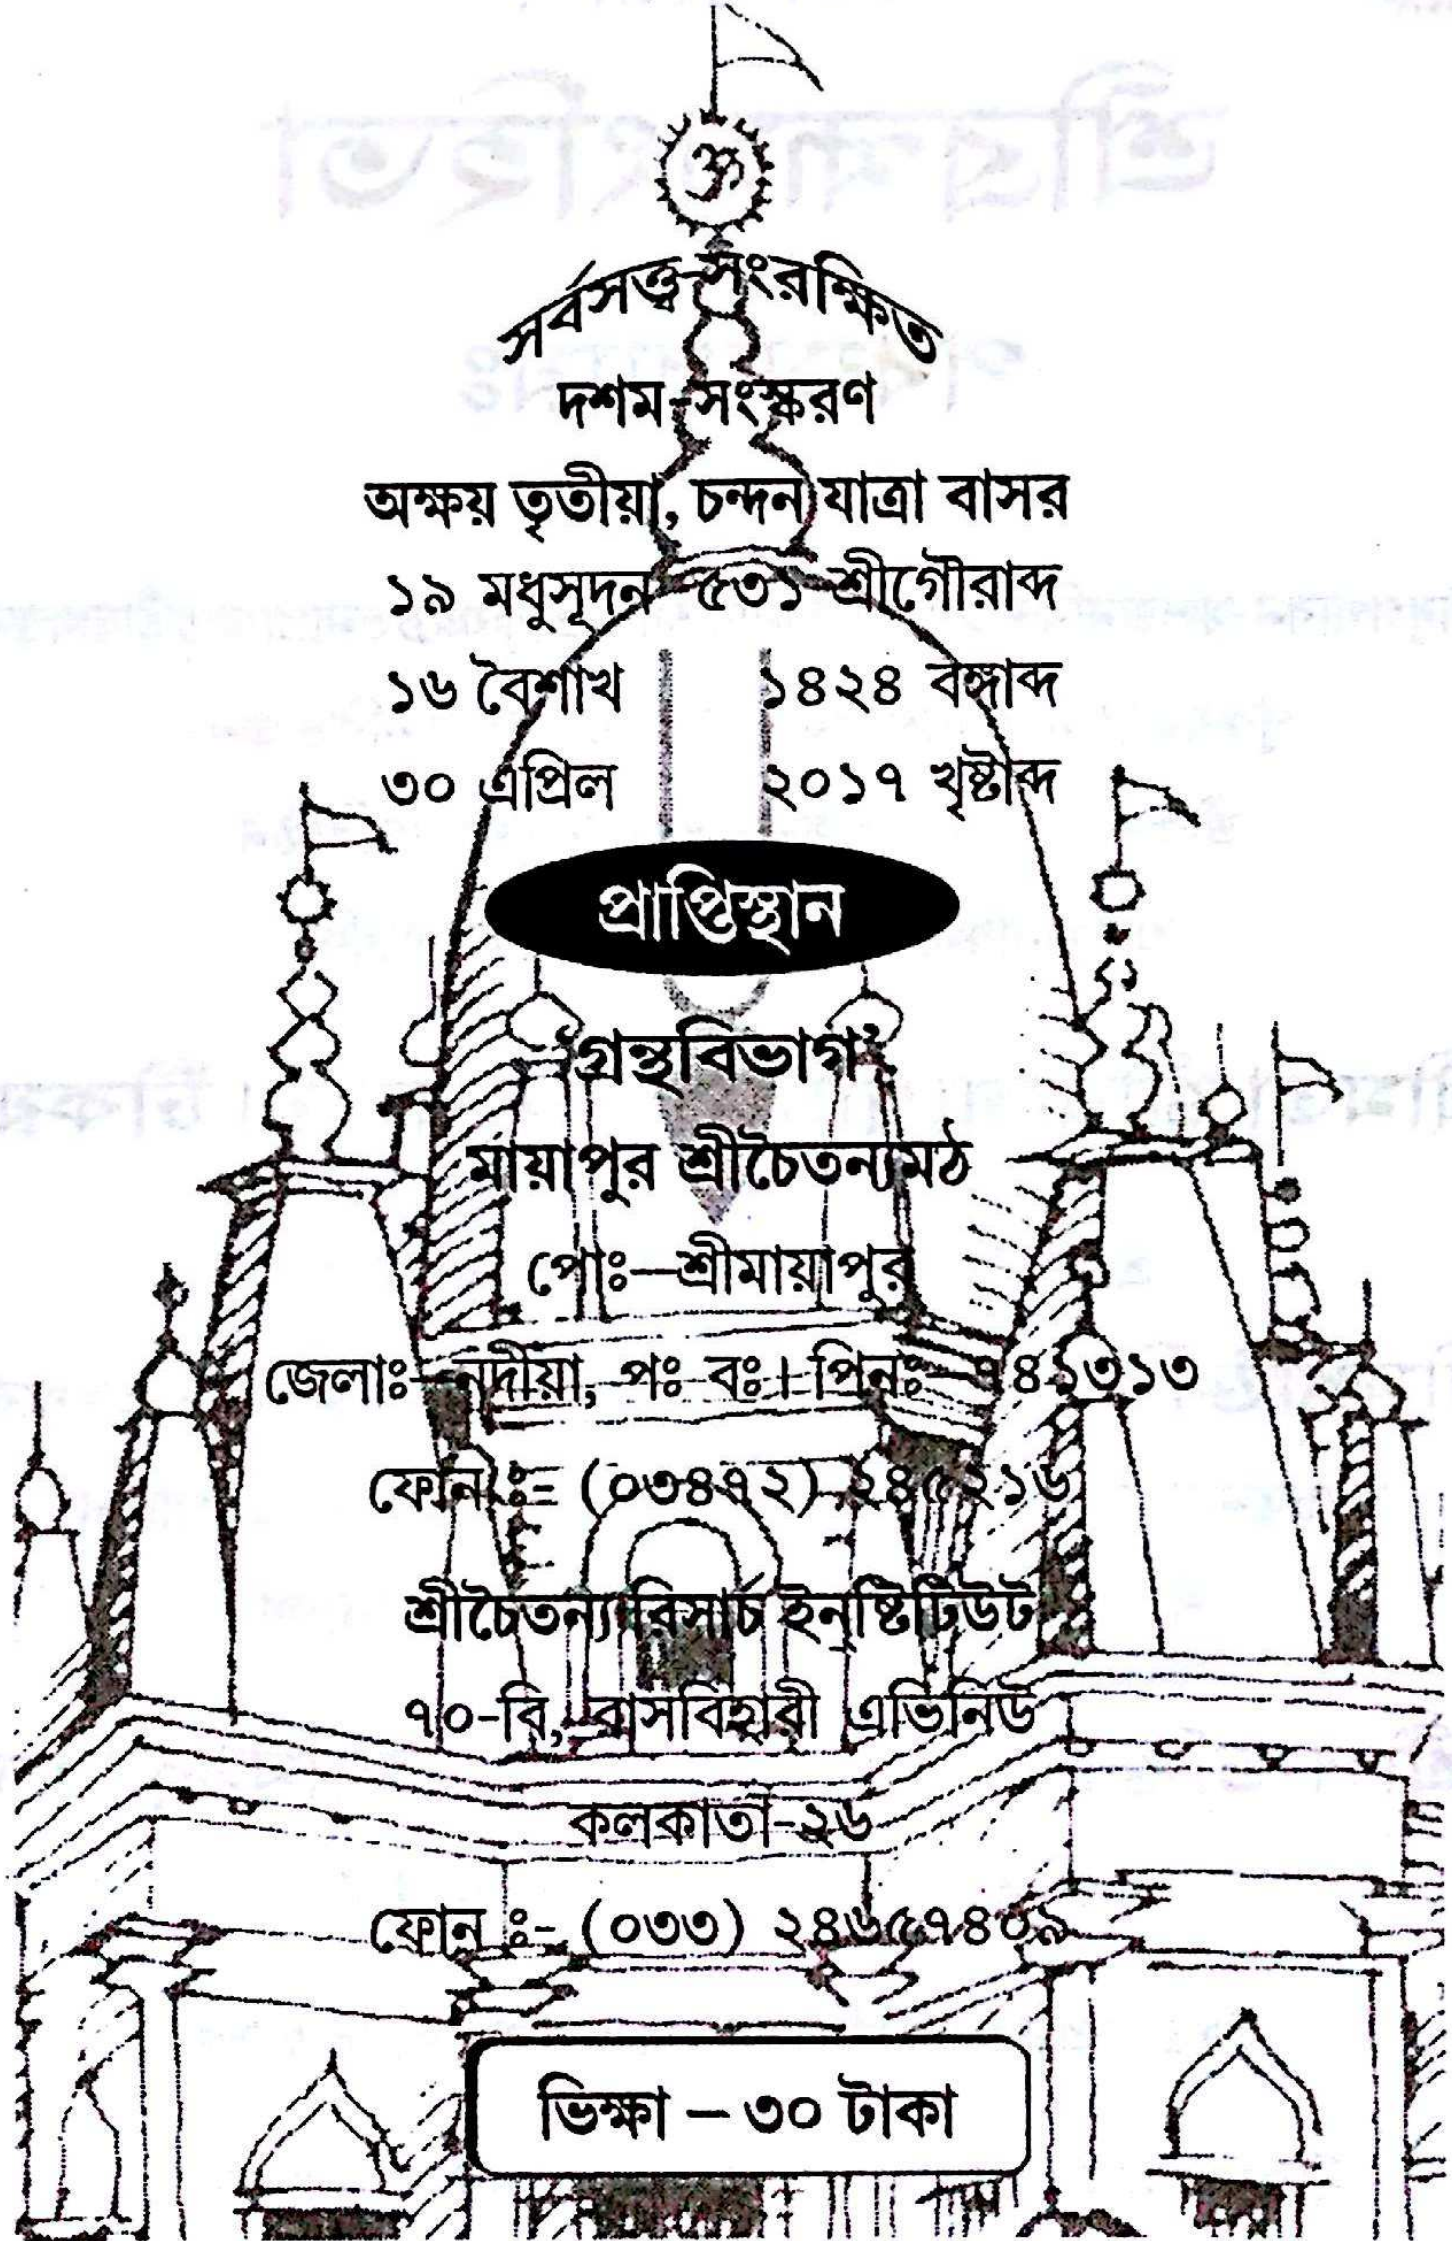 ॐ
সর্বসত্ত্ব-সংরক্ষিত
দশম-সংস্করণ
অক্ষয় তৃতীয়া, চন্দন যাত্রা বাসর
১৯ মধুসূদন ৫৩১ শ্রীগৌরাব্দ
১৬ বৈশাখ ১৪২৪ বঙ্গাব্দ
৩০ এপ্রিল ২০১৭ খৃষ্টাব্দ
প্রাপ্তিস্থান
‘গ্রন্থবিভাগ’
মায়াপুর শ্রীচৈতন্যমঠ
পোঃ—শ্রীমায়াপুর
জেলাঃ—নদীয়া, পঃ বঃ। পিনঃ—৭৪১৩১৩
ফোন ঃ- (০৩৪৭২) ২৪৫২১৬
শ্রীচৈতন্য রিসার্চ ইন্‌ষ্টিটিউট
৭০-বি, রাসবিহারী এভিনিউ
কলকাতা-২৬
ফোন ঃ- (০৩৩) ২৪৬৫৭৪০৯
ভিক্ষা – ৩০ টাকা